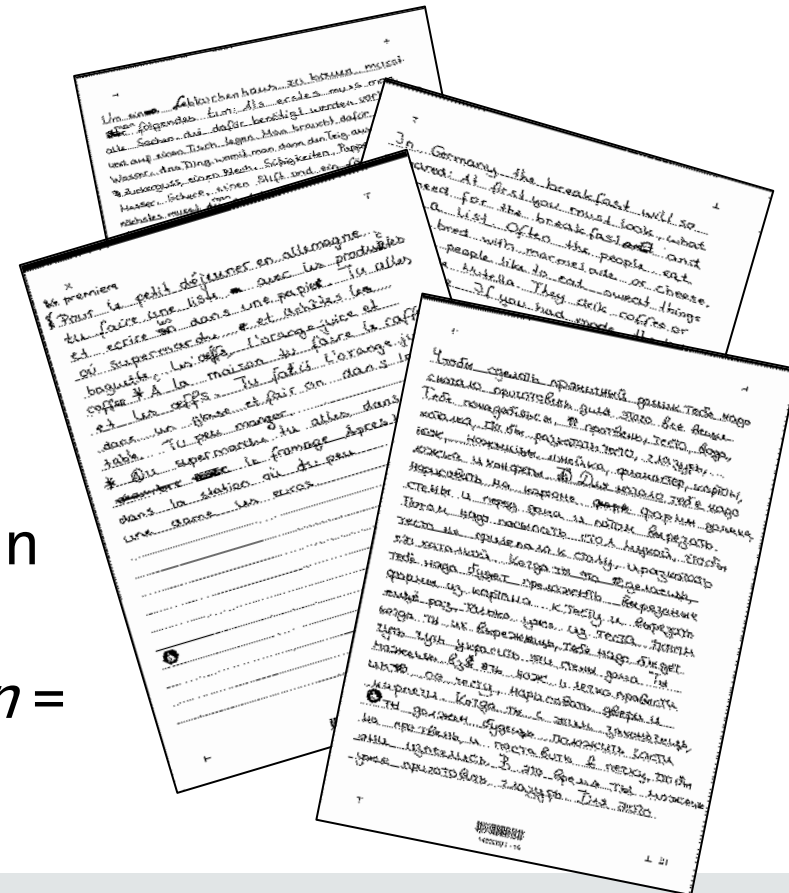 Um eine Lebkuchenhaus zu bauen musst
man folgendes tun: Als erstes muss man
alle Sachen, die dafür benötigt werden
und auf einen Tisch legen. Man braucht dafür
Wasser, das Ding womit man dann den Teig
Zuckerguss, einen Blech, Süßigkeiten,
Messer, Schere, einen Stift und ein
nächstes musst man
In Germany the breakfast will so
: At first you must look, what
need for the breakfast and and
a list. Often the people eat
bred with marmelade or cheese.
people like to eat sweat things
Nutella. They drik coffee or
If you had made
premiere
Pour le petit déjeuner en allemagne
tu faire une liste avec les produktes
et ecrire dans une papier. Tu alles
où supermarche et achètes les
baguette, les œffs, l'orange juice et
coffee A la maison tu faire le
et les œffs. Tu l'orange
dans un glase et fair on dans
table. Tu peu manger
Où supermarche tu alles dans
le fromage
dans la station où du peu
une dame les euros
n
n =
Чтобы сделать пряничный домик тебе надо
сначало приготовить для этого все вещи.
Тебе понадобиться, протвень, тесто, вода,
каталка що бы разкатать тесто, глазурь,
нож, ножницы, линейка, фламастер, картон,
и конфеты. Для начало тебе надо
нарисовать на картоне форми домика,
стены и перед дома и патом вырезать.
Патом надо пасыпать стол мукой, чтобы
тесто не прилепало к столу, и разкатать
его каталкой. Когда ты это зделаешь,
тебе надо будет преложить вырезаные
формы из картона к тесту и вырезать
ещё раз, только уже из теста. Патом
когда ты их вырежешь, тебе надо будет
чуть чуть украсить эти стены дома. Ты
можешь взять нож и легко правести
им по тесту, нарисовать двери и
кирпечи. Когда ты с этим законьчишь,
ты должен будешь положить части
на протвень и поставить в печку, чтобы
они изпеклись. В это время ты можешь
уже приготовить глазурь. Для этого